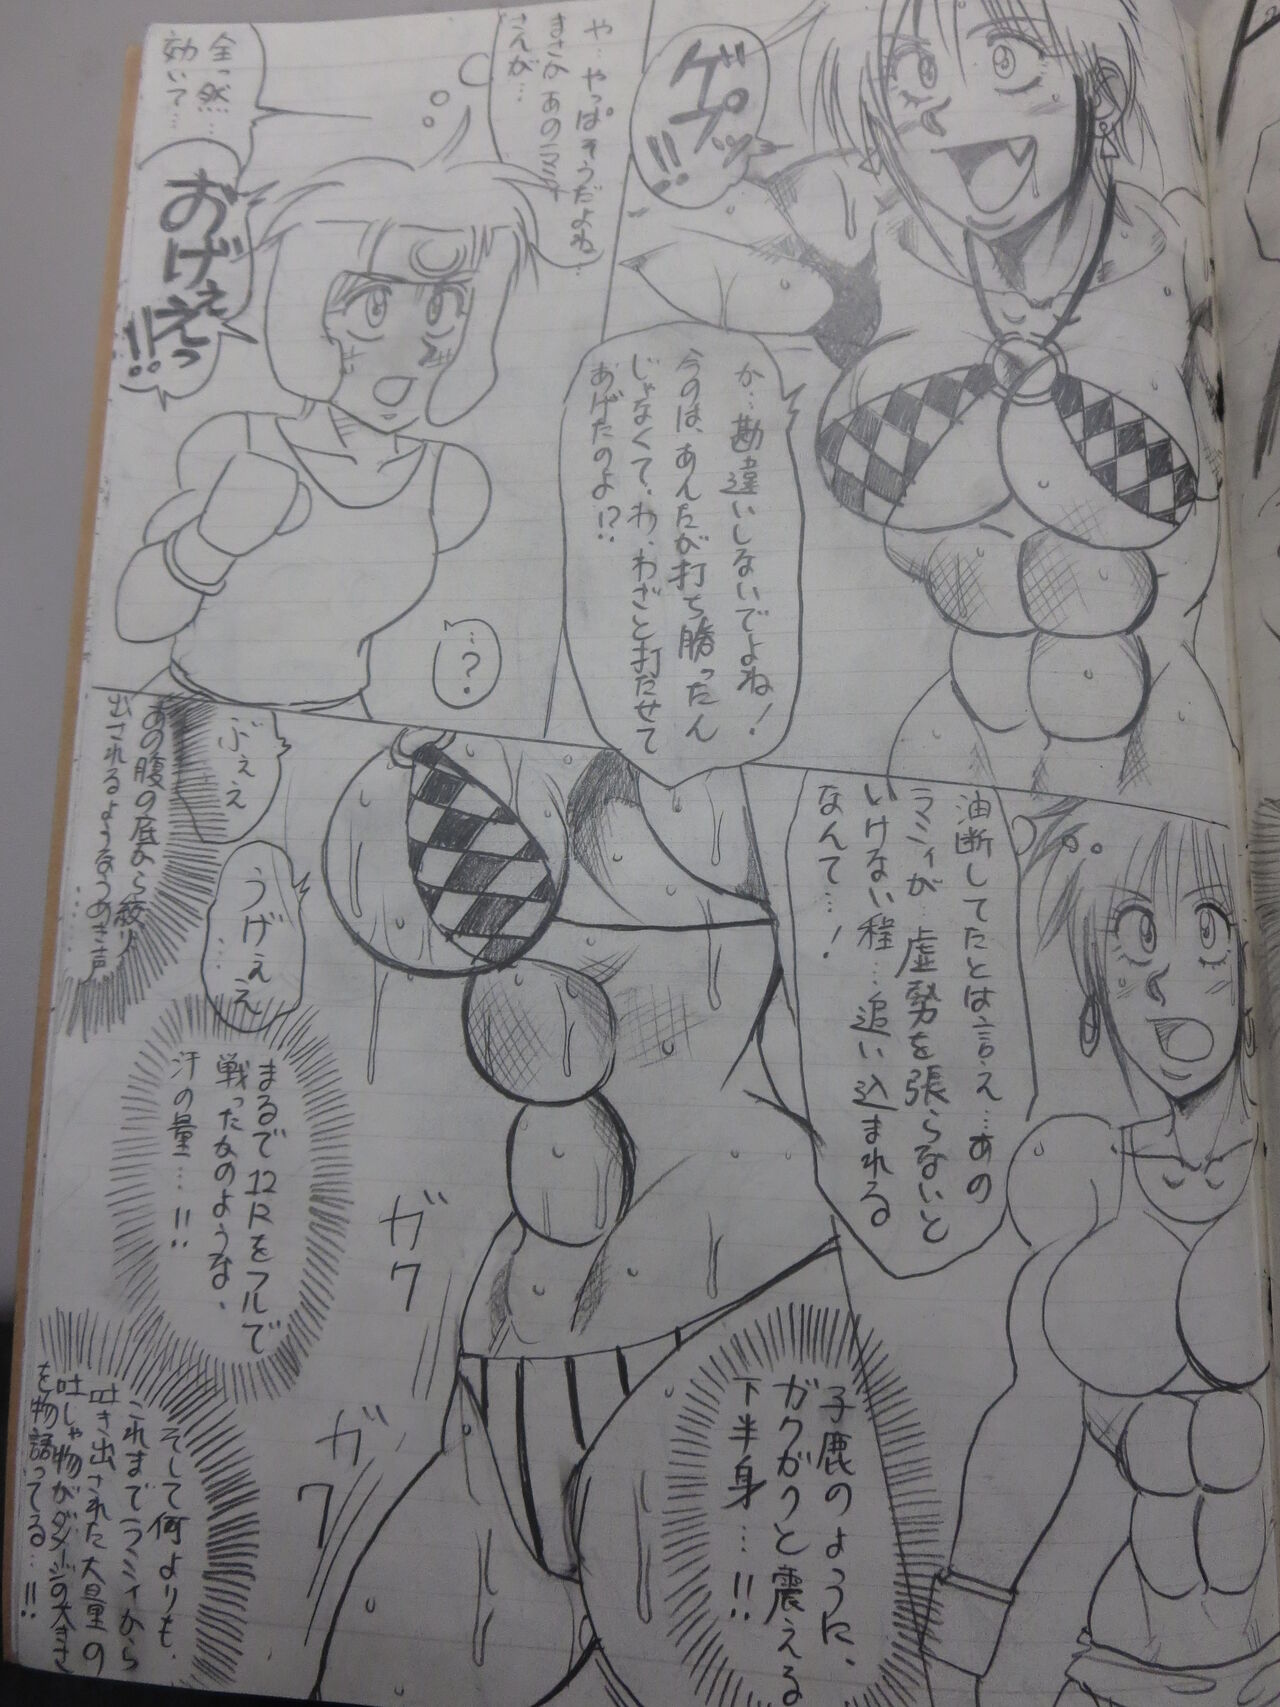 ゲプッ!!
か…勘違いしないでよね!
今のは、あんたが打ち勝ったん
じゃなくて、わ、わざと打たせて
あげたのよ!?
や…やっぱそうだよね…
まさかあのラミィ
さんが…
全っ然…
効いて…
おげぇえっ!!
…?
油断してたとは言え…あの
ラミィが…虚勢を張らないと
いけない程…追い込まれる
なんて…!
ぶぇぇ
うげぇぇ…
あの腹の底から絞り
出されるようなうめき声
…
まるで12Rをフルで
戦ったかのような、
汗の量…!!
ガク
ガク
子鹿のように、
ガクガクと震える
下半身…!!
そして何よりも、
これまでラミィから
吐き出された大量の
吐しゃ物がダメージの大きさ
を物語ってる…!!